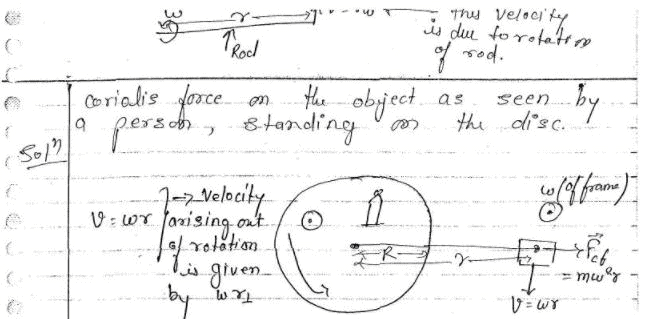 ω
r
this velocity
is due to rotation
of rod.
Rod
corialis force on the object as seen by
a person, standing on the disc.
Solⁿ
V = ωr
→ Velocity
arising out
of rotation
is given
by ωr⊥
R
r
ω (of frame)
F⃗cf
= mω²r
V = ωr